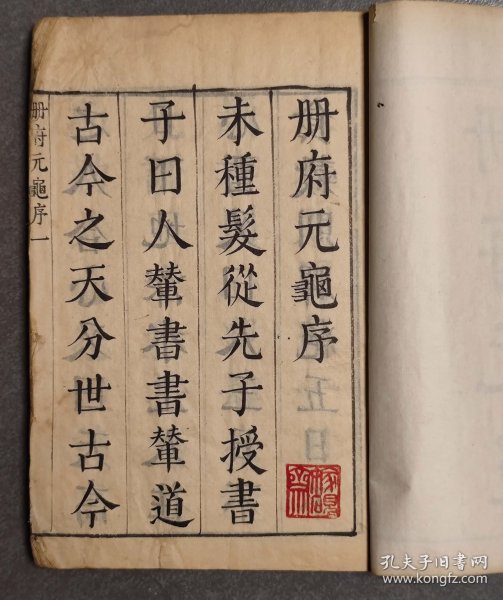 册府元龜序
未種髮從先子授書
子曰人輦書書輦道
古今之天分世古今
册府元龜序一
孔夫子旧书网
www.kongfz.com